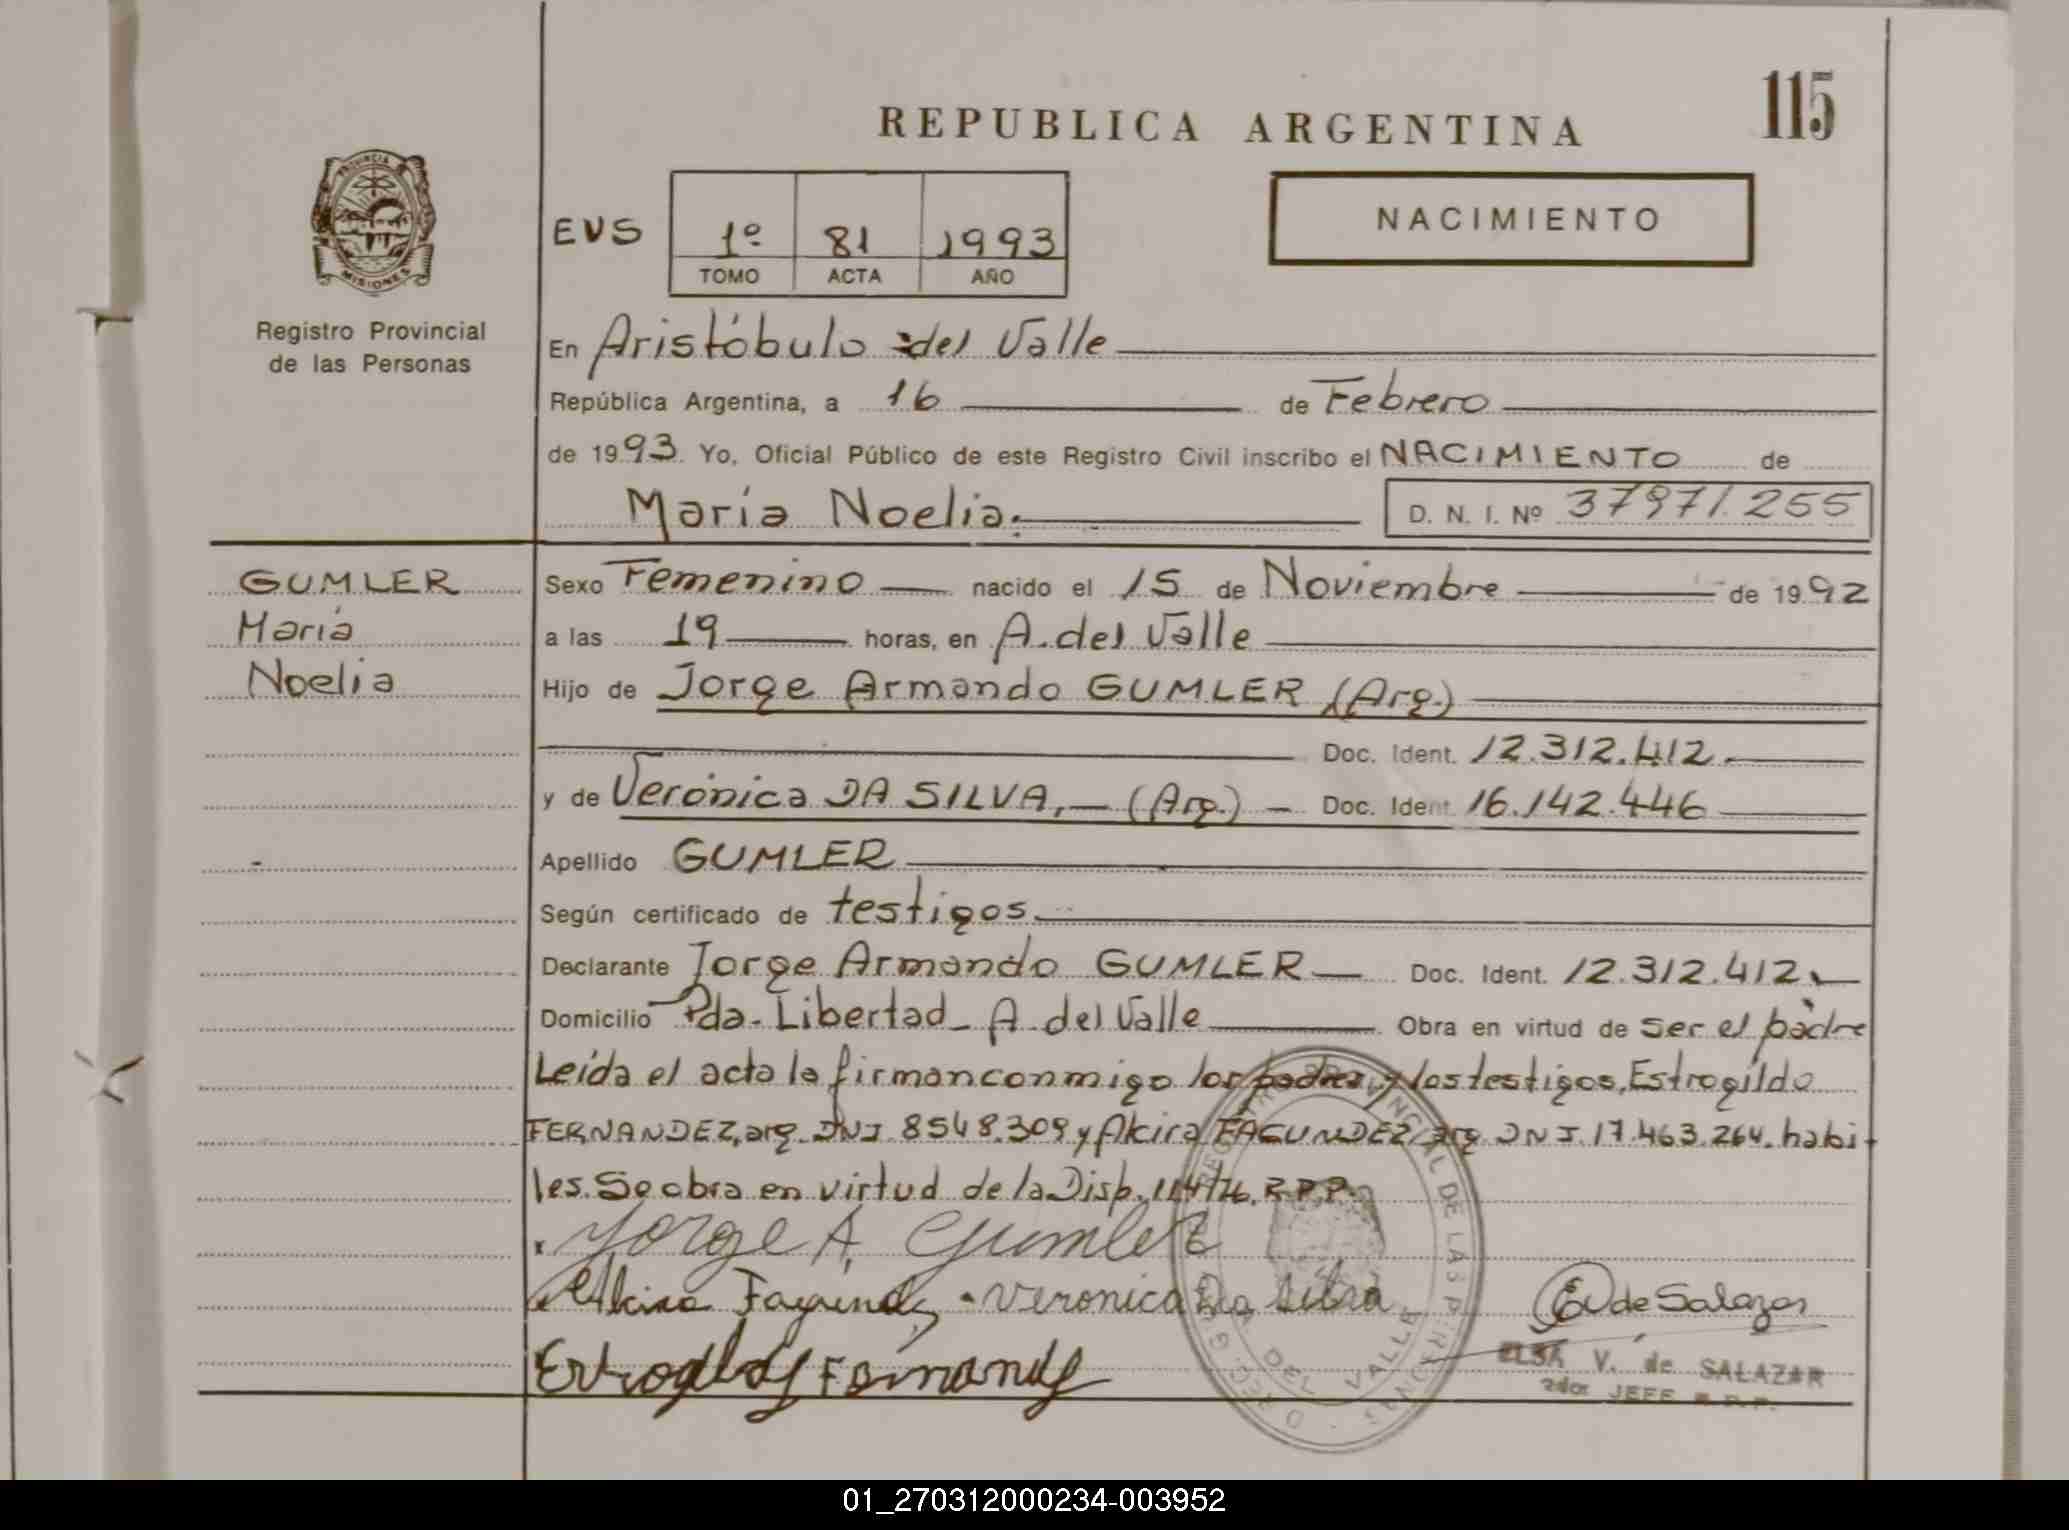 115
REPUBLICA ARGENTINA
PROVINCIA
MISIONES
Registro Provincial
de las Personas
EVS
1º 81 1993
TOMO ACTA AÑO
NACIMIENTO
En Aristóbulo del Valle
República Argentina, a 16 de Febrero
de 1993. Yo, Oficial Público de este Registro Civil inscribo el NACIMIENTO de
María Noelia.
D. N. I. Nº 37971.255
GUMLER
María
Noelia
Sexo Femenino nacido el 15 de Noviembre de 1992
a las 19 horas, en A. del Valle
Hijo de Jorge Armando GUMLER (Arg.)
Doc. Ident. 12.312.412.
y de Verónica DA SILVA, (Arg.) Doc. Ident. 16.142.446
Apellido GUMLER
Según certificado de testigos.
Declarante Jorge Armando GUMLER Doc. Ident. 12.312.412.
Domicilio Pda. Libertad - A. del Valle Obra en virtud de ser el padre
Leída el acta la firman conmigo los padres y los testigos, Estrogildo
FERNANDEZ, arg. DNI. 8548.309 y Alcira FAGUNDEZ arg DNI. 17.463.264. habi-
les. Se obra en virtud de la Disp. 114/76. R.P.P.
Jorge A. Gumler
Alcira Fagundez Veronica Da Silva
EV de Salazar
ELSA V. de SALAZAR
JEFE R.P.P.
DEL VALLE
01_270312000234-003952